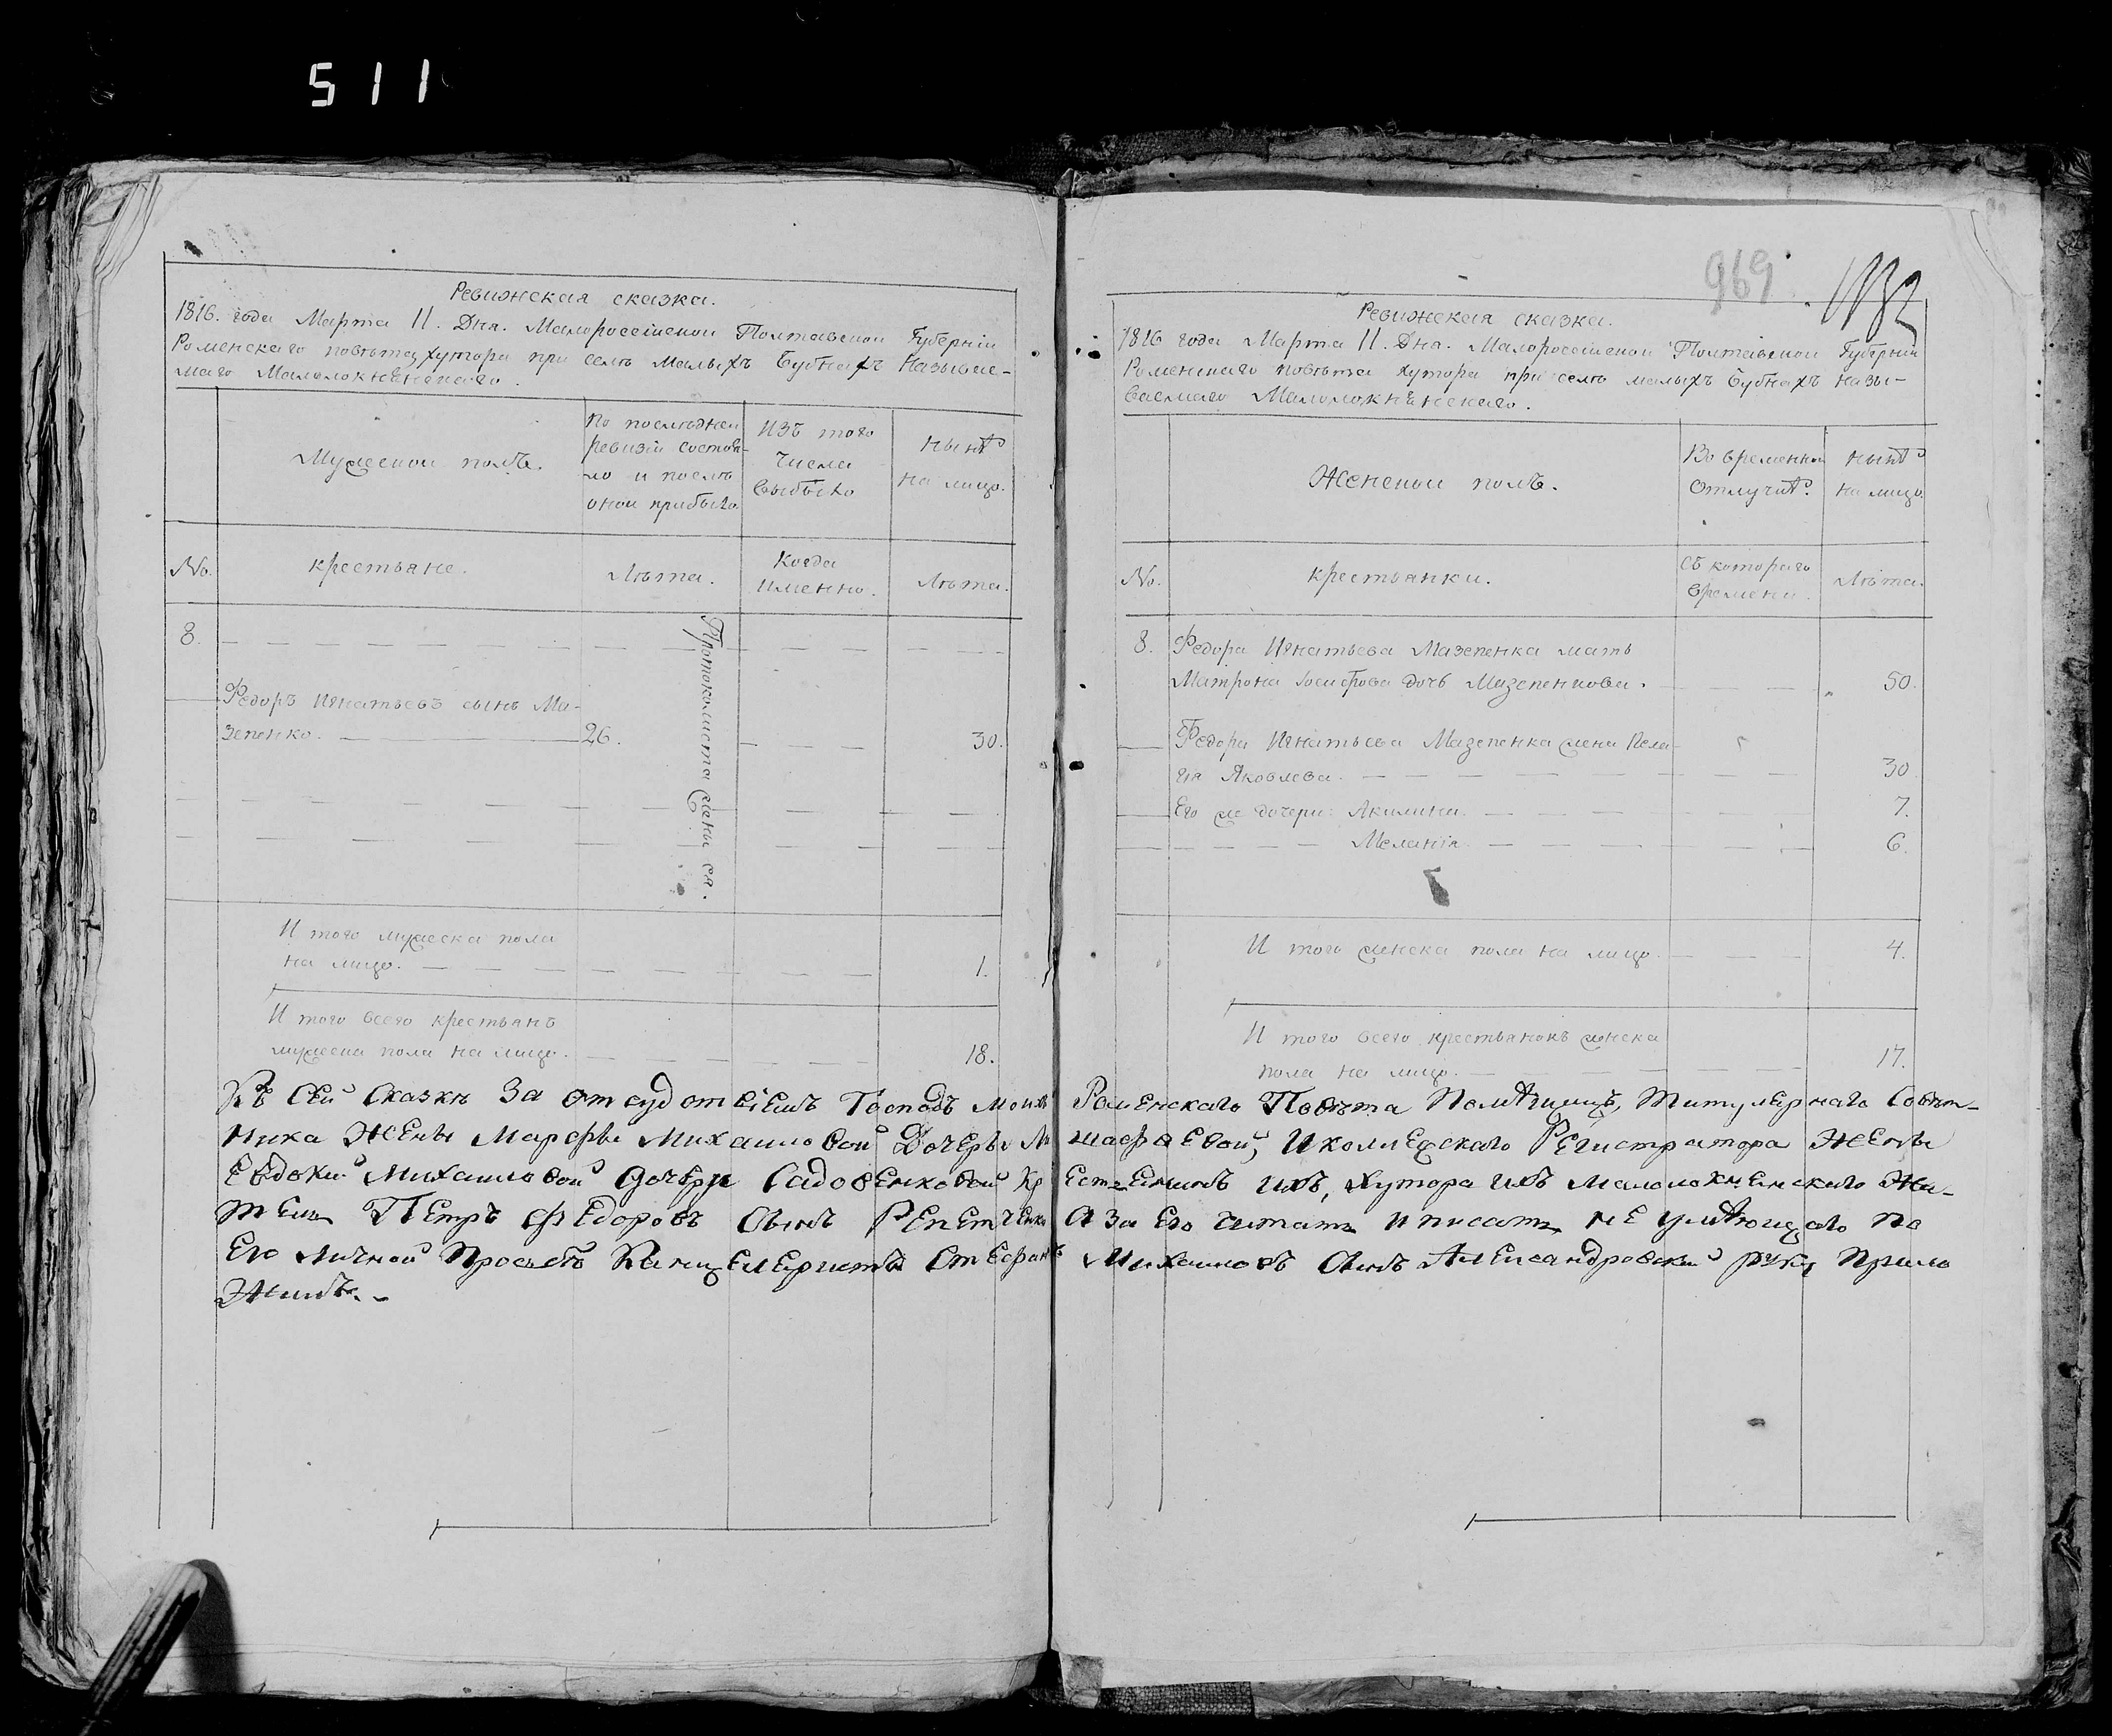 511
Ревижская сказка.
1816. года Марта 11. Дня. Малороссійской Полтавской Губерніи
Роменскаго повѣта хутора при селѣ Малыхъ Бубнахъ Называе-
маго Малолокненскаго.
Мужеской полъ.
По последней
ревизіи состоя-
ло и послѣ
оной прибыло
Изъ того
числа
выбыло
нынѣ
на лицо.
No.
крестьяне.
Лѣта.
Когда
именно.
Лѣта.
8.
Федоръ Игнатьевъ сынъ Ма-
зепенко. 26. 30.
Протоколиста жены ея.
И того мужеска пола
на лицо. 1.
И того всего крестьянъ
мужеска пола на лицо. 18.
969
Ревижская сказка.
1816 года Марта 11. Дня. Малороссійской Полтавской Губерніи
Роменскаго повѣта хутора при селѣ малыхъ Бубнахъ назы-
ваемаго Малолокненскаго.
Женской полъ.
Во временной
отлучкѣ.
нынѣ
на лицо.
No.
крестьянки.
Съ котораго
времени.
Лѣта.
8. Федора Игнатьева Мазепенка мать
Матрона дочь Мазепенкова. 50.
Федора Игнатьева Мазепенка жена Пела-
гія Яковлева. 30
Его же дочери: Акилина. 7.
Меланія. 6.
И того женска пола на лицо. 4.
И того всего крестьянокъ женска
пола на лицо. 17.
Къ Сей Сказкѣ За отсудствіемъ Господъ Моихъ Роменскаго Повѣта Помѣщицъ, Титулярнаго Совѣт-
Ника Жены Марфы Михайловой Дочери И Колležскаго Регистратора Жены
Евдокіи Михайловой Дочери Садовенковой Хутора Ихъ Малолокненскаго Жи-
тель Петръ Федоровъ Сынъ Репетченко А За Его Читать И писать Не Умѣющаго По
Его Личной Просьбѣ Канцеляристъ Стефанъ Михайловъ Сынъ Александровский Руку Прило
Жилъ.